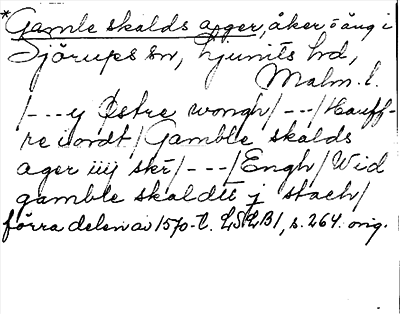 *Gamle skalds ager, åker o äng i
Sjörups sn, Ljunits hd,
Malm. l.
/---y Østre wongh/---/Hauff-
re iordt/Gamble skalds
ager iiij skr/---/Engh/Wid
gamble skaldtt j stach/
förra delen av 1570-t. LSLB1, s. 264. orig.